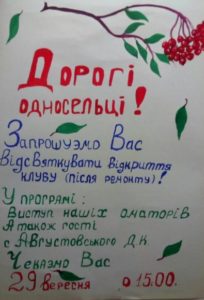 Дорогі
односельці!
Запрошуэмо Вас
Відсвяткувати відкриття
клубу (після ремонту)!
У програмі:
Виступ наших аматорів
А також гості
с Августовського Д.К.
Чекаэмо Вас
29 вересня о 15.00.